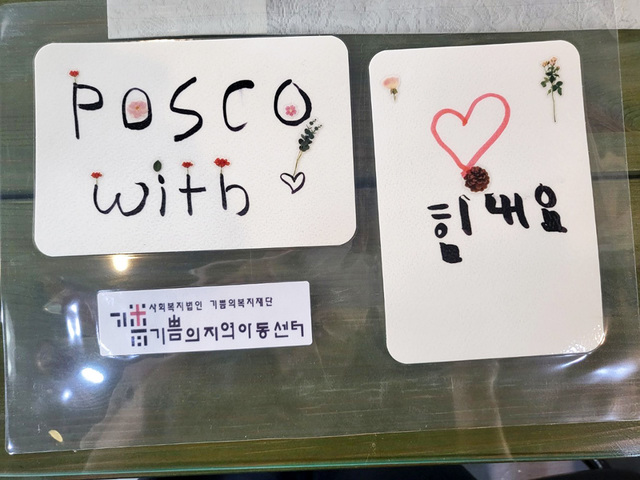 POSCO
with
힘내요
사회복지법인 기쁨의복지재단
기쁨의지역아동센터